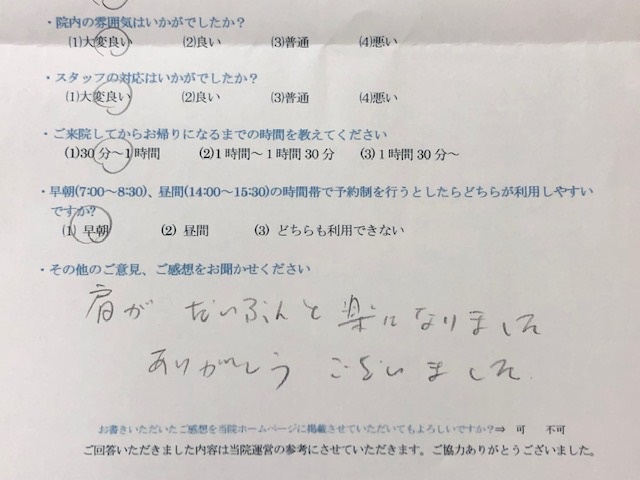 ・院内の雰囲気はいかがでしたか？
(1)大変良い (2)良い (3)普通 (4)悪い
・スタッフの対応はいかがでしたか？
(1)大変良い (2)良い (3)普通 (4)悪い
・ご来院してからお帰りになるまでの時間を教えてください
(1)30分～1時間 (2)1時間～1時間30分 (3)1時間30分～
・早朝(7:00～8:30)、昼間(14:00～15:30)の時間帯で予約制を行うとしたらどちらが利用しやすい
ですか?
(1) 早朝 (2) 昼間 (3) どちらも利用できない
・その他のご意見、ご感想をお聞かせください
肩が だいぶんと 楽になりました
ありがとう ございました.
お書きいただいたご感想を当院ホームページに掲載させていただいてもよろしいですか？⇒ 可 不可
ご回答いただきました内容は当院運営の参考にさせていただきます。ご協力ありがとうございました。